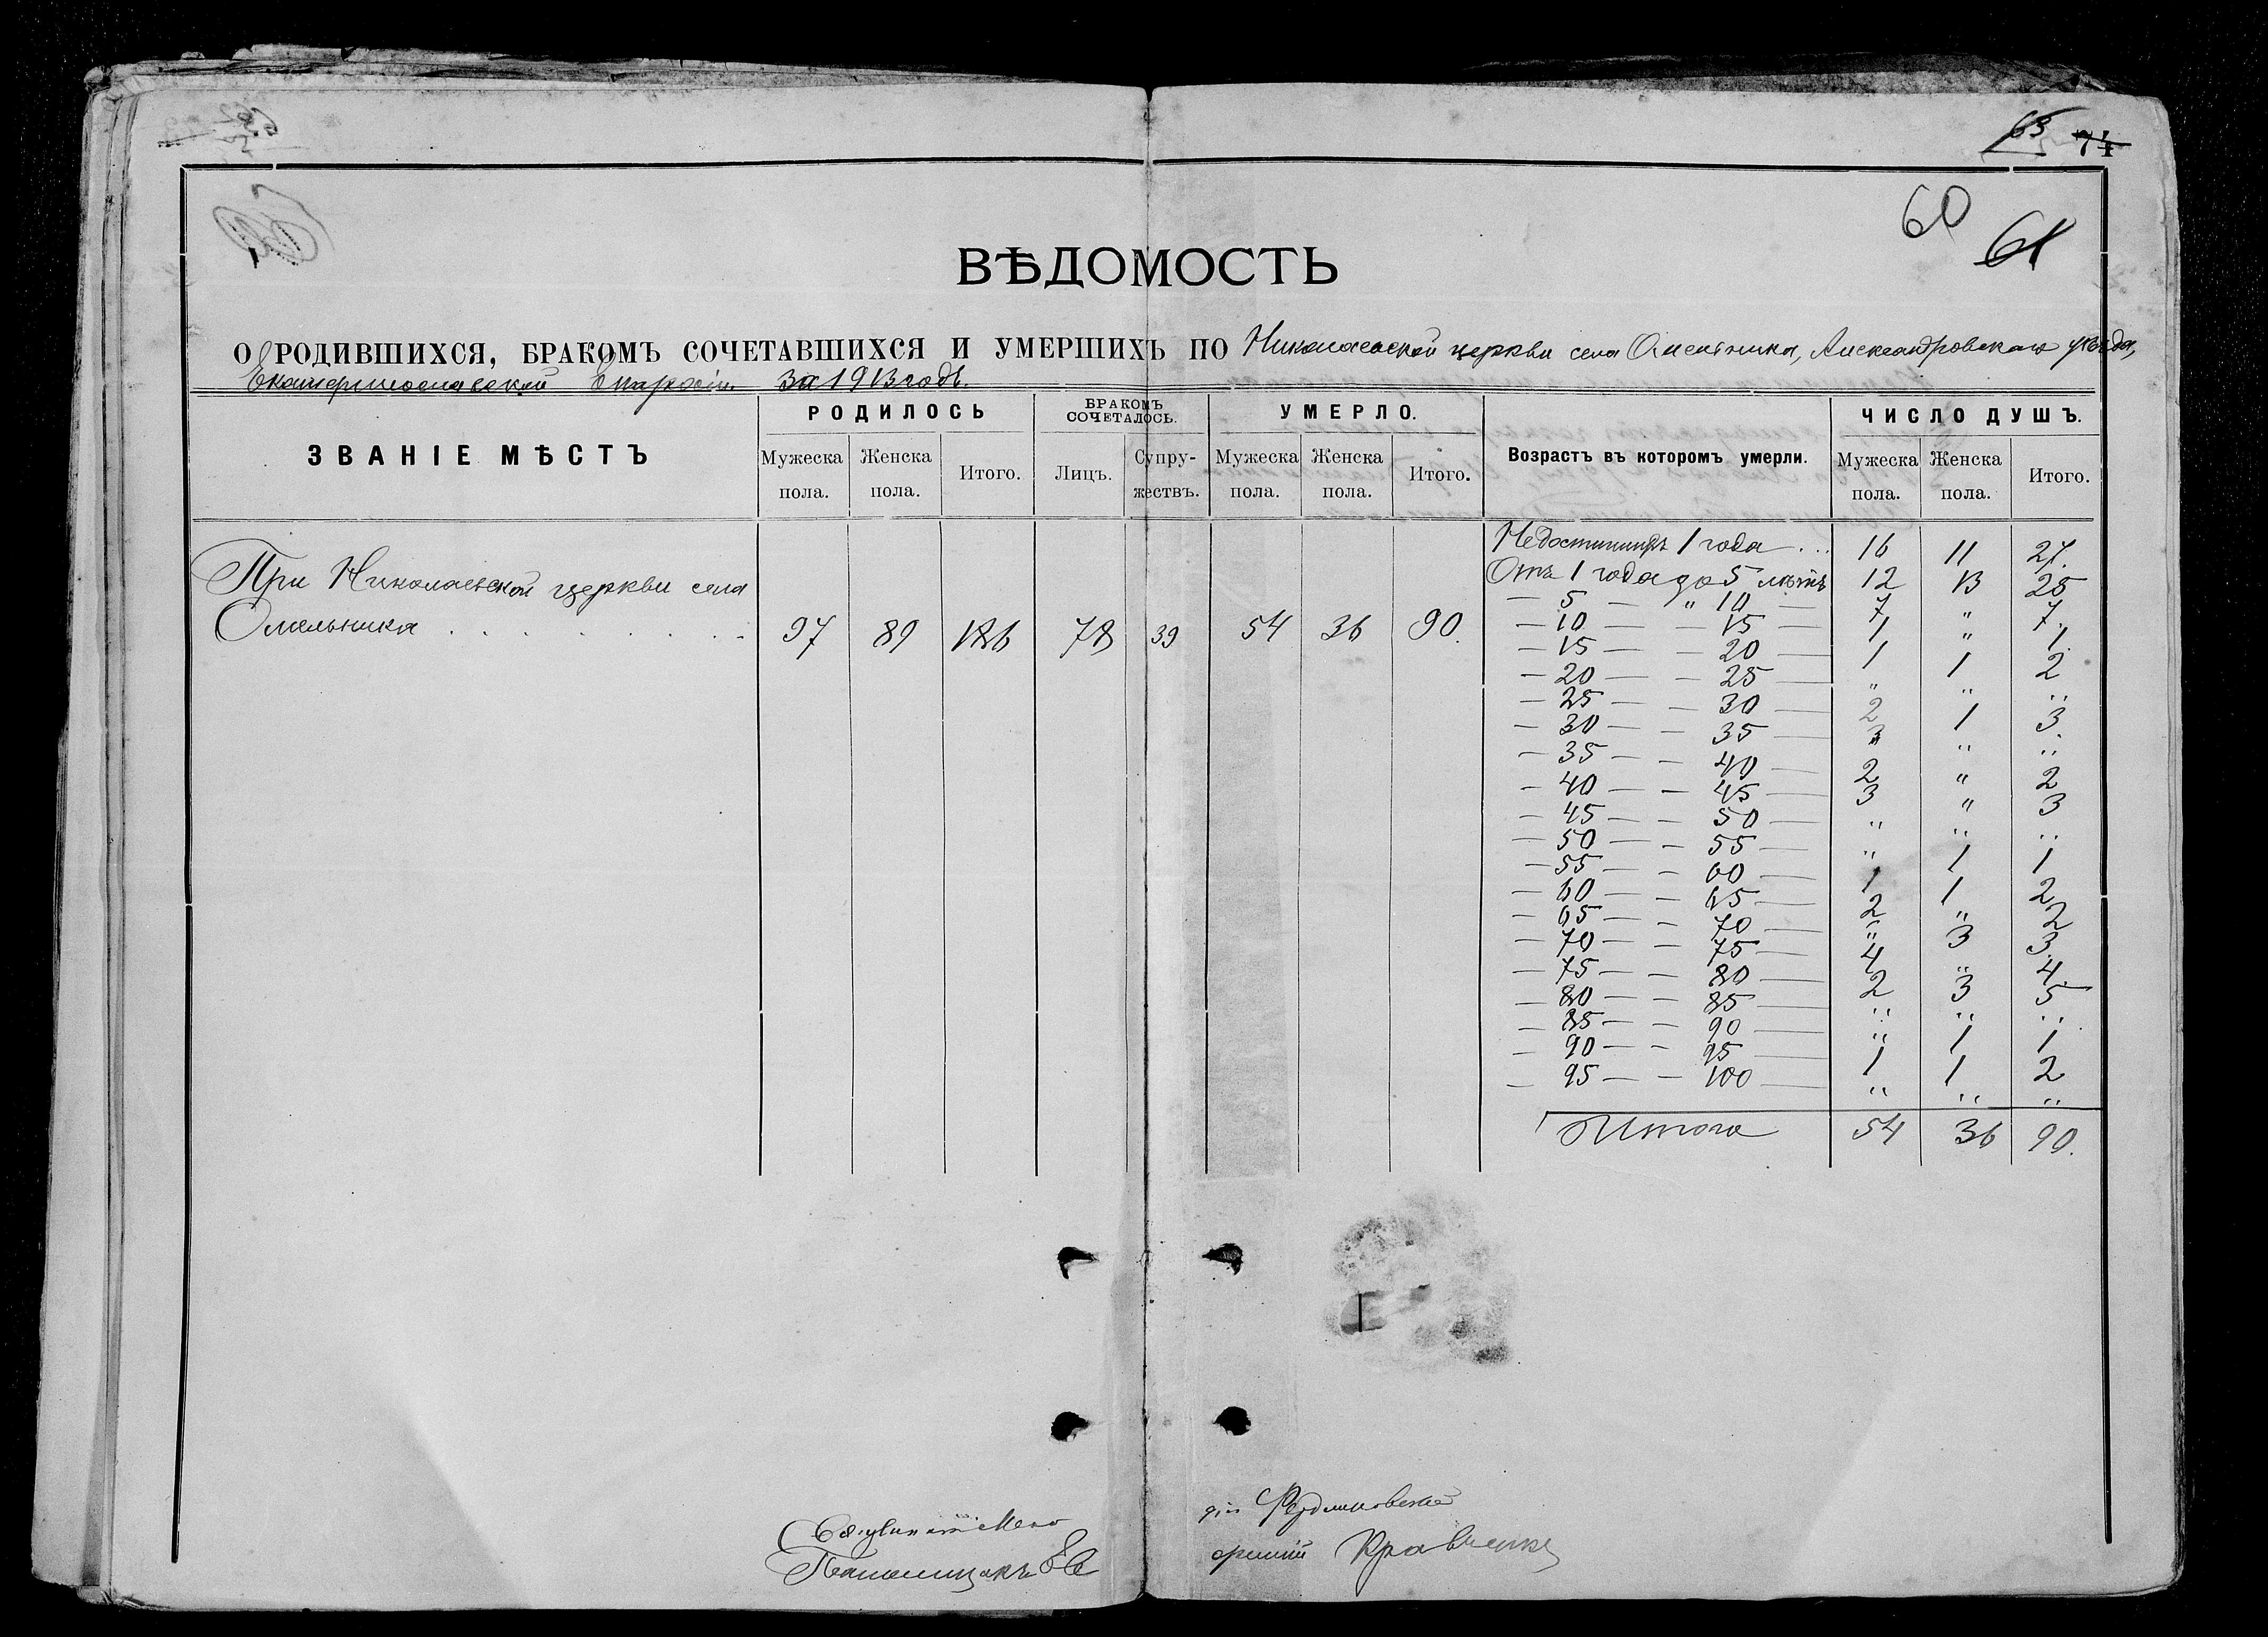 63 74
60
61
ВѢДОМОСТЬ
О РОДИВШИХСЯ, БРАКОМЪ СОЧЕТАВШИХСЯ И УМЕРШИХЪ ПО Николаевской церкви села Омельника, Александровскаго уѣзда,
Екатеринославской Епархіи за 1913 годъ.
ЗВАНІЕ МѢСТЪ РОДИЛОСЬ БРАКОМЪ СОЧЕТАЛОСЬ. УМЕРЛО. Возрастъ въ которомъ умерли. ЧИСЛО ДУШЪ.
Мужеска пола. Женска пола. Итого. Лицъ. Супружествъ. Мужеска пола. Женска пола. Итого. Мужеска пола. Женска пола. Итого.
При Николаевской церкви села
Омельника . . . . . . . . 97 89 186 78 39 54 36 90.
Недостигшихъ 1 года . . . 16 11 27.
Отъ 1 года до 5 лѣтъ 12 13 25
— 5 — " 10 — 7 " 7.
— 10 — — 15 — 1 " 1.
— 15 — — 20 — 1 1 2
— 20 — — 25 — " " "
— 25 — — 30 — 2 1 3
— 30 — — 35 — " " "
— 35 — — 40 — 2 " 2
— 40 — — 45 — 3 " 3
— 45 — — 50 — " " "
— 50 — — 55 — " 1 1
— 55 — — 60 — 1 1 2
— 60 — — 65 — 2 " 2
— 65 — — 70 — " 3 3.
— 70 — — 75 — 4 " 4.
— 75 — — 80 — 2 3 5
— 80 — — 85 — " " "
— 85 — — 90 — " 1 1
— 90 — — 95 — 1 1 2
— 95 — — 100 — " " "
Итого 54 36 90.
Кравченко